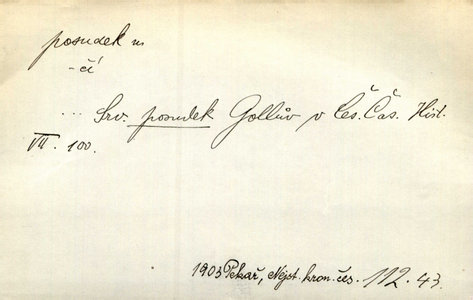 posudek m
-čí
... Srv. posudek Gollův v Čes. Čas. Hist.
VII. 100.
1903 Pekař, Nejst. kron. čes. 112. 43.